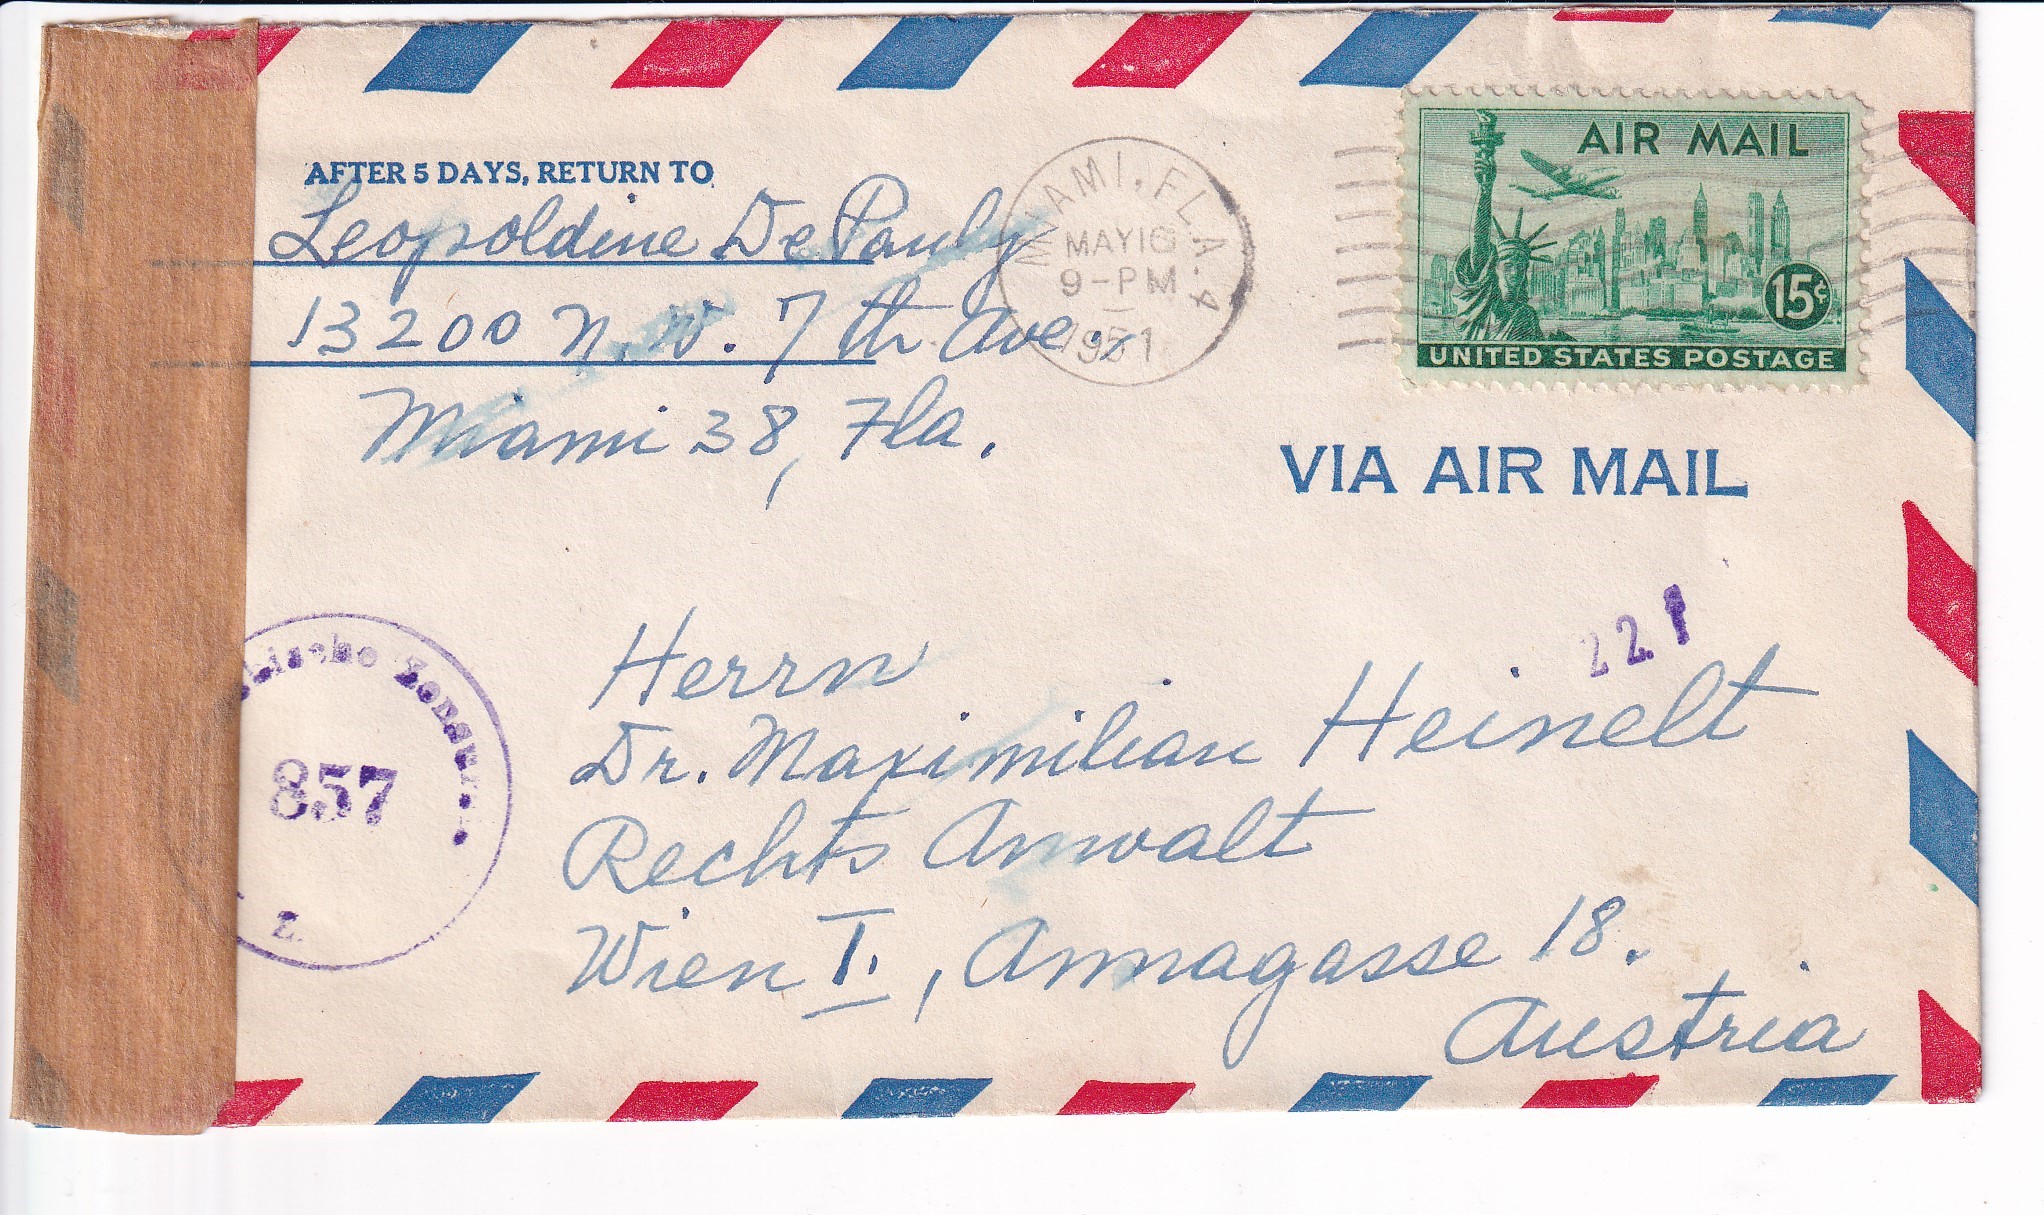 AFTER 5 DAYS, RETURN TO
Leopoldine De Pauly
13200 N.W. 7th Ave.
Miami 38, Fla.
MIAMI, FLA. 4
MAY 16
9-PM
1951
AIR MAIL
15¢
UNITED STATES POSTAGE
VIA AIR MAIL
221
Herrn
Dr. Maximilian Heinelt
Rechts Anwalt
Wien I., Annagasse 18.
Austria
857
Z.